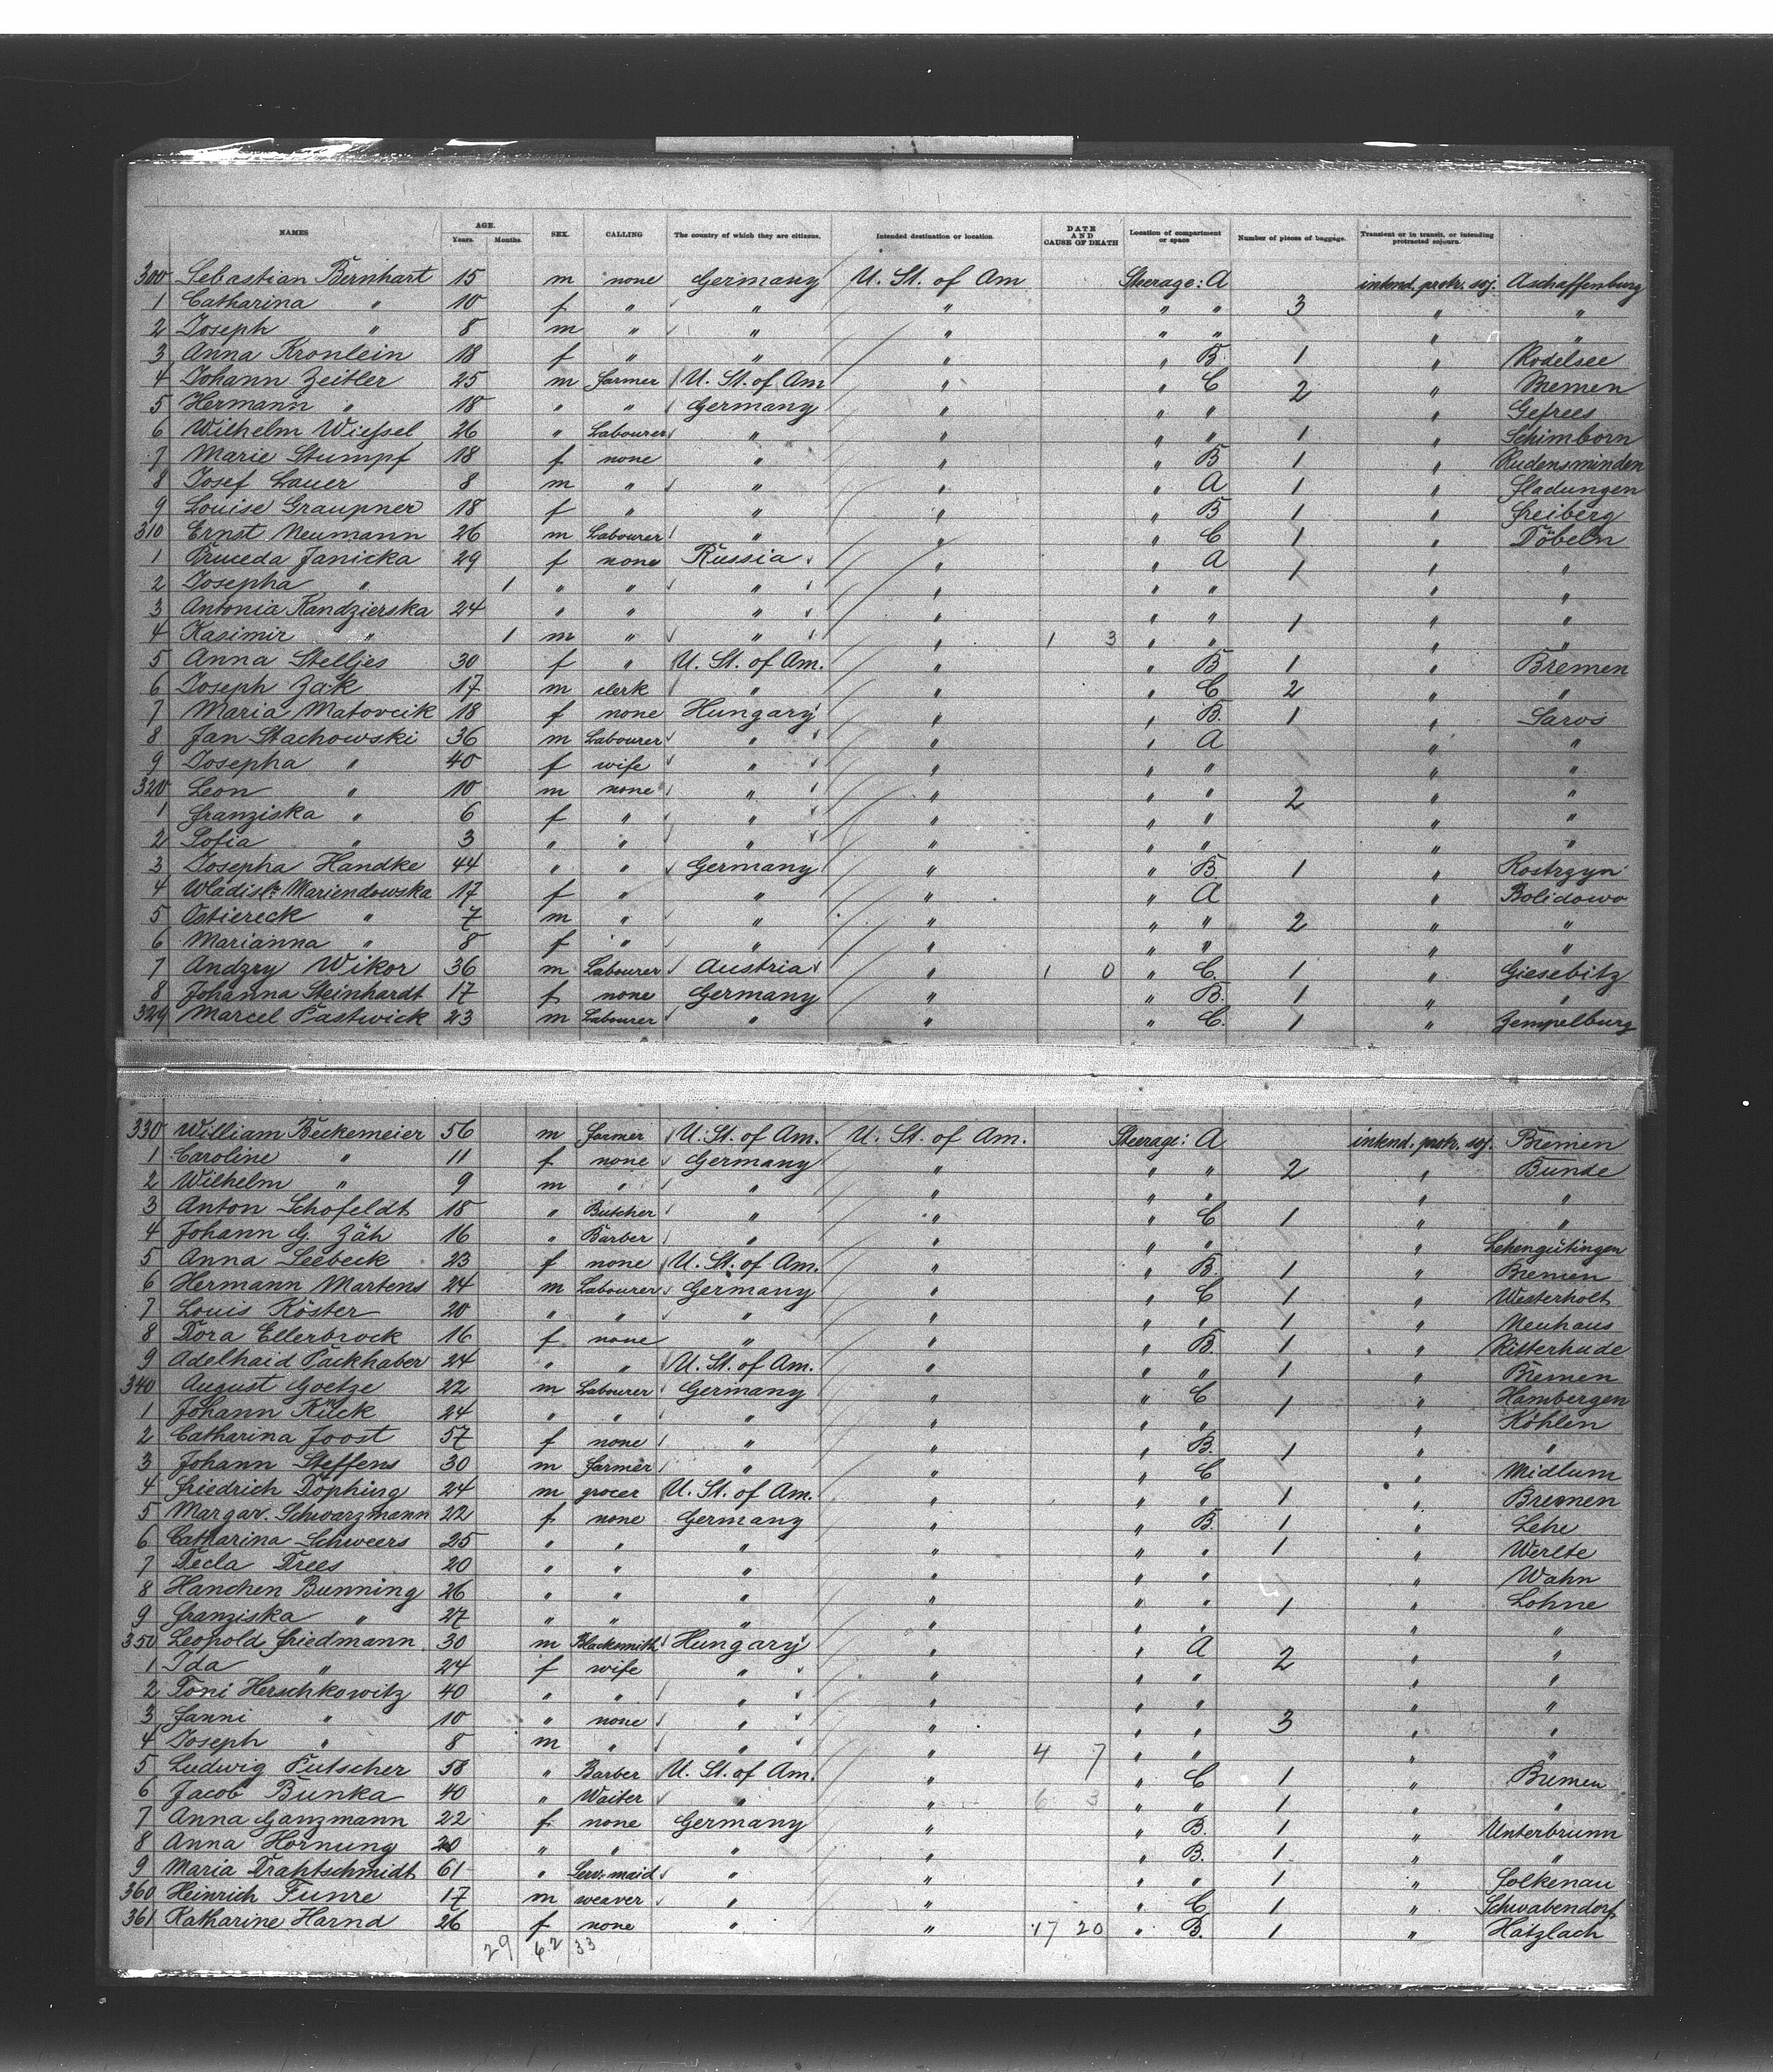 NAMES AGE. Years. Months. SEX. CALLING The country of which they are citizens. Intended destination or location DATE AND CAUSE OF DEATH Location of compartment or space Number of pieces of baggage. Transient or in transit, or intending protracted sojourn.
300 Sebastian Bernhart 15 m none Germany U. St. of Am Steerage: A intend. protr. soj. Aschaffenburg
1 Catharina " 10 f " " " " " 3 " "
2 Joseph " 8 m " " " " " " "
3 Anna Kronlein 18 f " " " " B. 1 " Rodelsee
4 Johann Zeitler 25 m farmer U. St. of Am " " C 2 " Bremen
5 Hermann " 18 " " Germany " " " " Gefrees
6 Wilhelm Wiessel 26 " Labourer " " " " 1 " Schimborn
7 Marie Stumpf 18 f none " " " B 1 " Rudensminden
8 Josef Lauer 8 m " " " " A 1 " Fladungen
9 Louise Graupner 18 f " " " " B 1 " Freiberg
310 Ernst Neumann 26 m Labourer " " " C 1 " Döbeln
1 Janicka 29 f none Russia " " A 1 " "
2 Josepha " 1 " " " " " " " "
3 Antonia Kandzierska 24 " " " " " " 1 " "
4 Kasimir " 1 m " " " 1 3 " " " "
5 Anna Stelljes 30 f " U. St. of Am. " " B 1 " Bremen
6 Joseph Zak 17 m clerk " " " C 2 " "
7 Maria Matovcik 18 f none Hungary " " B. 1 " Saros
8 Jan Stachowski 36 m Labourer " " " A " "
9 Josepha " 40 f wife " " " " " "
320 Leon " 10 m none " " " " 2 " "
1 Franziska " 6 f " " " " " " "
2 Sofia " 3 " " " " " " " "
3 Josepha Handke 44 " " Germany " " B 1 " Kostrzyn
4 Wladisl. Mariendowska 17 f " " " " A " Bolidowo
5 Ostiereck " 7 m " " " " " 2 " "
6 Marianna " 8 f " " " " " " "
7 Andzry Wikor 36 m Labourer Austria " 1 0 " C. 1 " Giesebitz
8 Johanna Steinhardt 17 f none Germany " " B. 1 " "
329 Marcel Pastwick 23 m Labourer " " " C. 1 " Zempelburg
330 William Beckemeier 56 m farmer U. St. of Am. U. St. of Am. Steerage: A intend. protr. soj. Bremen
1 Caroline " 11 f none Germany " " " 2 " Bunde
2 Wilhelm " 9 m " " " " " " "
3 Anton Schofeldt 18 " Butcher " " " C 1 " "
4 Johann G. Zäh 16 " Barber " " " " " Lehengütingen
5 Anna Seebeck 23 f none U. St. of Am. " " B. 1 " Bremen
6 Hermann Martens 24 m Labourer Germany " " C 1 " Westerholt
7 Louis Köster 20 " " " " " " 1 " Neuhaus
8 Dora Ellerbrock 16 f none " " " B 1 " Ritterhude
9 Adelhaid Packhaber 24 " " U. St. of Am. " " " 1 " Bremen
340 August Goetze 22 m Labourer Germany " " C 1 " Hambergen
1 Johann Kück 24 " " " " " " " Köhlen
2 Catharina Joost 57 f none " " " B. 1 " "
3 Johann Steffens 30 m farmer " " " C " Midlum
4 Friedrich Döphing 24 m grocer U. St. of Am. " " " 1 " Bremen
5 Margar. Schwarzmann 22 f none Germany " " B. 1 " Lehe
6 Catharina Schweers 25 " " " " " " 1 " Werlte
7 Tecla Drees 20 " " " " " " " Wahn
8 Hanchen Bunning 26 " " " " " " 1 " Lohne
9 Franziska " 27 " " " " " " " "
350 Leopold Friedmann 30 m Blacksmith Hungary " " A 2 " "
1 Ida " 24 f wife " " " " " "
2 Toni Herschkowitz 40 " " " " " " " "
3 Fanni " 10 " none " " " " 3 " "
4 Joseph " 8 m " " " 4 7 " " " "
5 Ludwig Putscher 58 " Barber U. St. of Am. " " C 1 " Bremen
6 Jacob Bunka 40 " Waiter " " 6 3 " " 1 " "
7 Anna Ganzmann 22 f none Germany " " B. 1 " Unterbrunn
8 Anna Hornung 20 " " " " " B. 1 " "
9 Maria Drahtschmidt 61 " Serv. maid " " " " 1 " Folkenau
360 Heinrich Funre 17 m weaver " " " C 1 " Schwabendorf
361 Katharine Harnd 26 f none " " 17 20 " B. 1 " Hatzlach
29 62 33